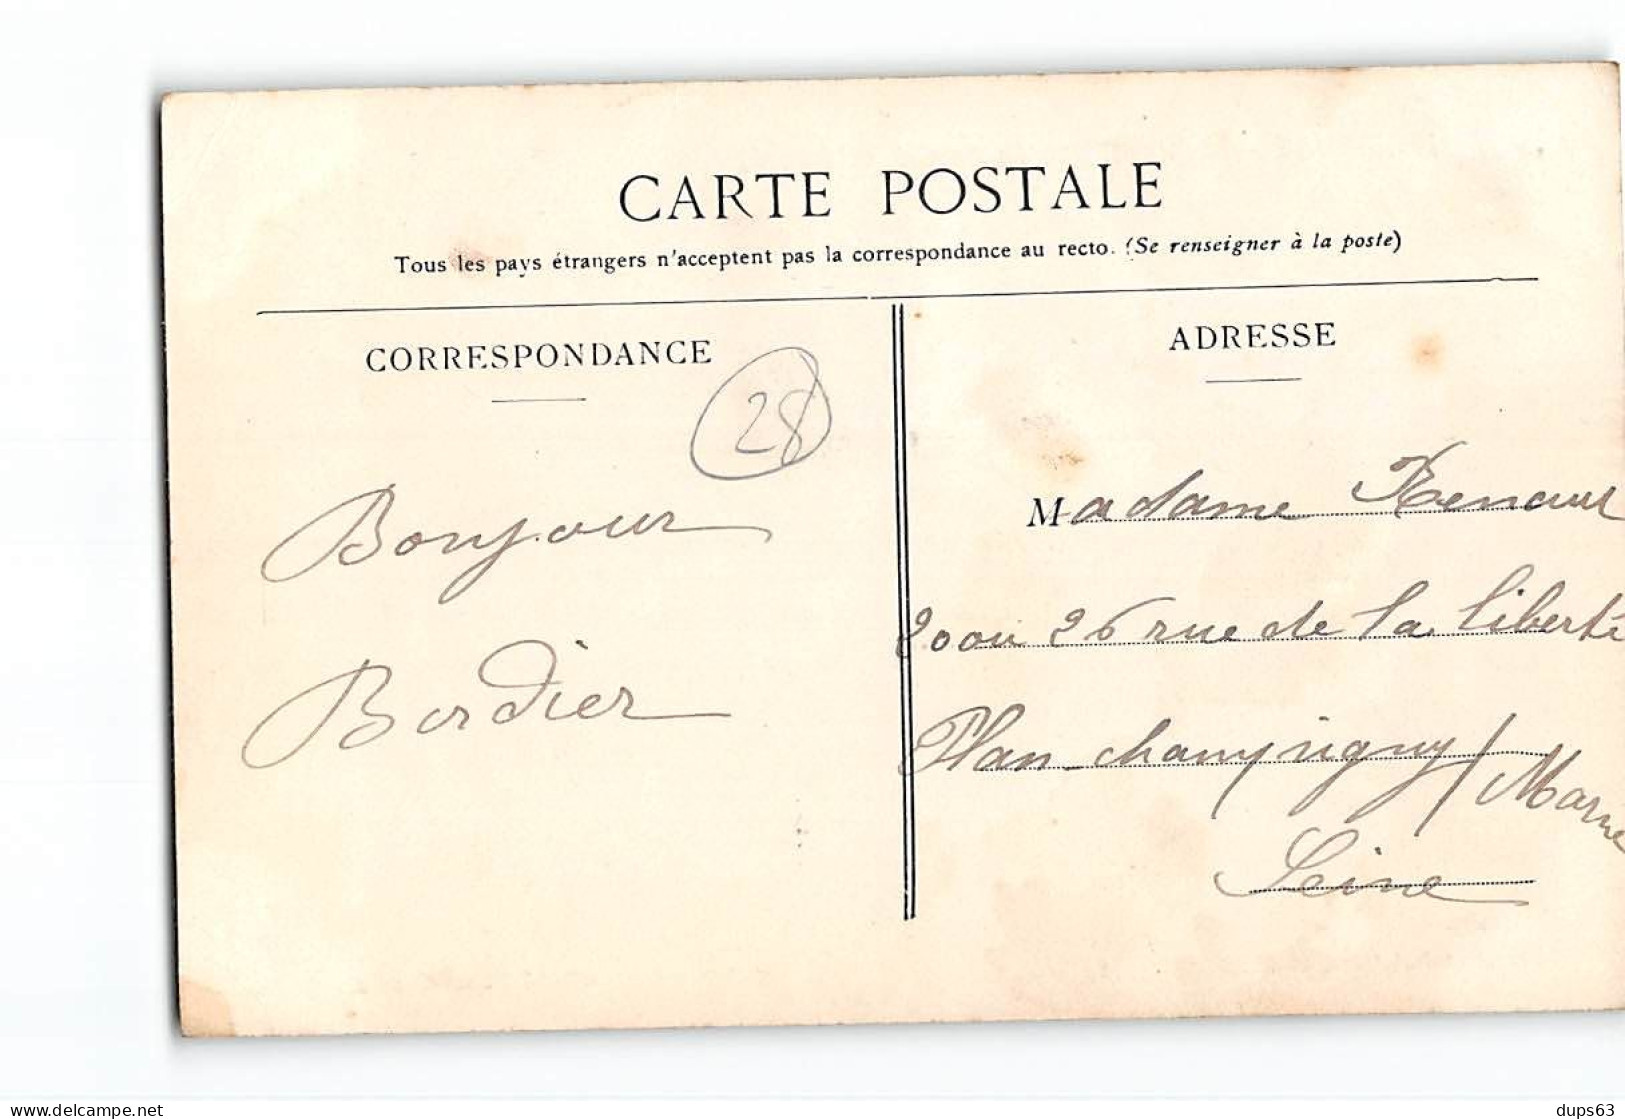 CARTE POSTALE
Tous les pays étrangers n'acceptent pas la correspondance au recto. (Se renseigner à la poste)
CORRESPONDANCE
28
Bonjour
Bordier
ADRESSE
Madame
20 ou 26 rue de la liberté
Plan-champigny / Marne
Seine
delcampe.net
dups63